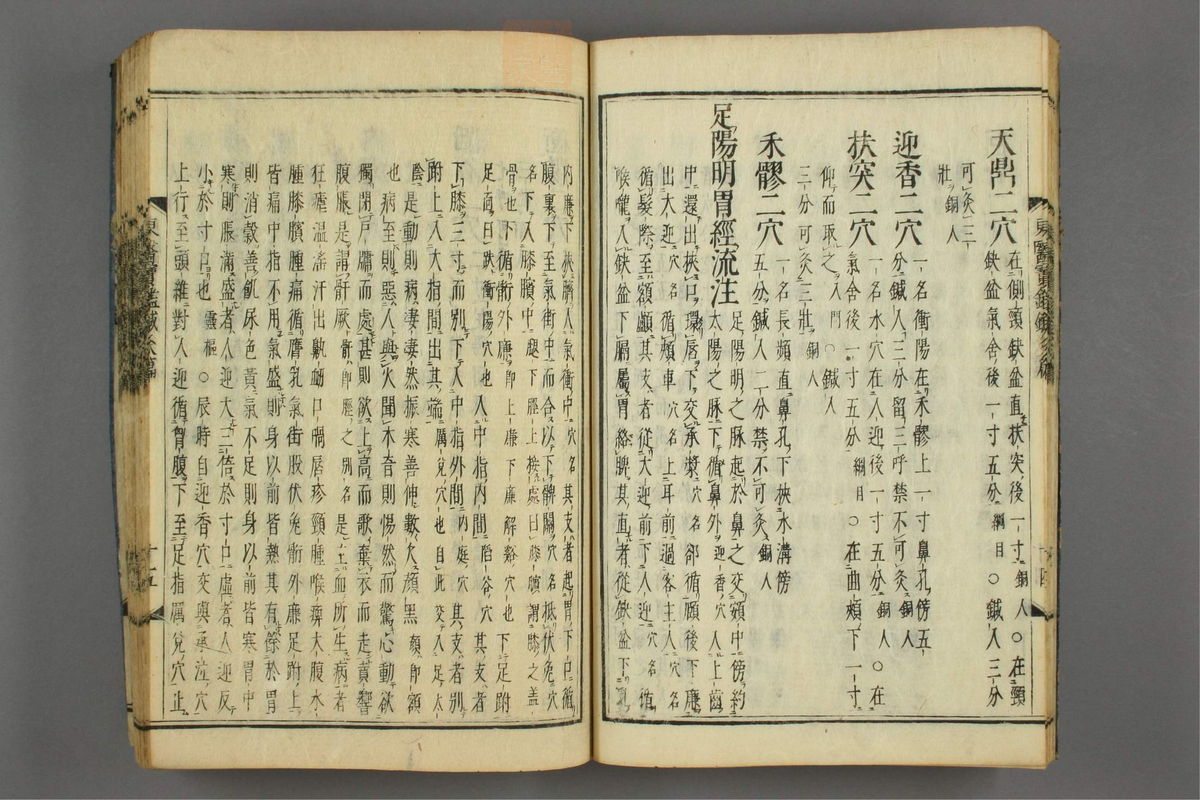 天鼎二穴在側頸缺盆直扶突後一寸銅人○在頸
缺盆氣舍後一寸五分綱目○鍼入三分
可灸三
壯銅人
迎香二穴一名衝陽在禾髎上一寸鼻孔傍五
分鍼入三分留三呼禁不可灸銅人
扶突二穴一名水穴在人迎後一寸五分銅人○在
氣舍後一寸五分綱目○在曲頰下一寸
仰而取之入門○鍼入
三分可灸三壯銅人
禾髎二穴一名長頻直鼻孔下挾水溝傍
五分鍼入二分禁不可灸銅人
足陽明胃經流注足陽明之脉起於鼻之交頞中傍約
太陽之脉下循鼻外迎香穴入上齒
中還出挾口環唇下交承漿穴名却循頤後下廉
出大迎穴名循頰車穴名上耳前過客主人穴名
循髮際至額顱其支者從大迎前下人迎穴名循
喉嚨入缺盆下膈屬胃絡脾其直者從缺盆下乳
內廉下挾臍入氣衝中穴名其支者起胃下口循
腹裏下至氣衝中而合以下髀關穴名抵伏兔穴
名下入膝臏中腿下脛上接處曰膝臏謂膝之盖
骨也下循䯒外廉卽上廉下廉解谿穴也下足跗
足面曰跗衝陽穴也入中指內間陷谷穴其支者
下膝三寸而別下入中指外間內庭穴其支者別
跗上入大指間出其端厲兌穴也自此交入足太
陰○是動則病凄凄然振寒善伸數欠顔黑顔卽額
也病至則惡人與火聞木音則惕然而驚心動欲
獨閉戶牖而處甚則欲上高而歌棄衣而走賁響
腹脹是謂骭厥骭卽脛之別名是主血所生病者
狂瘧溫淫汗出鼽衂口喎唇疹頸腫喉痺大腹水
腫膝臏腫痛循膺乳氣街股伏兔䯒外廉足跗上
皆痛中指不用氣盛則身以前皆熱其有餘於胃
則消穀善飢尿色黃氣不足則身以前皆寒胃中
寒則脹滿盛者人迎大三倍於寸口虛者人迎反
小於寸口也靈樞○辰時自迎香穴交與承泣穴
上行至頭維對人迎循胷腹下至足指厲兌穴止